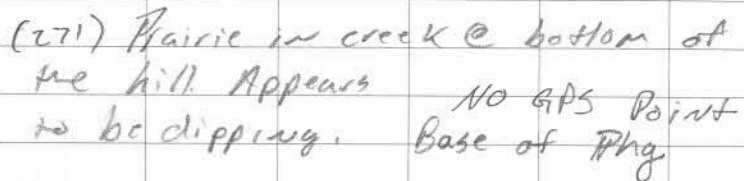 (271) Prairie in creek @ bottom of
the hill. Appears
to be dipping.
NO GPS Point
Base of Phg